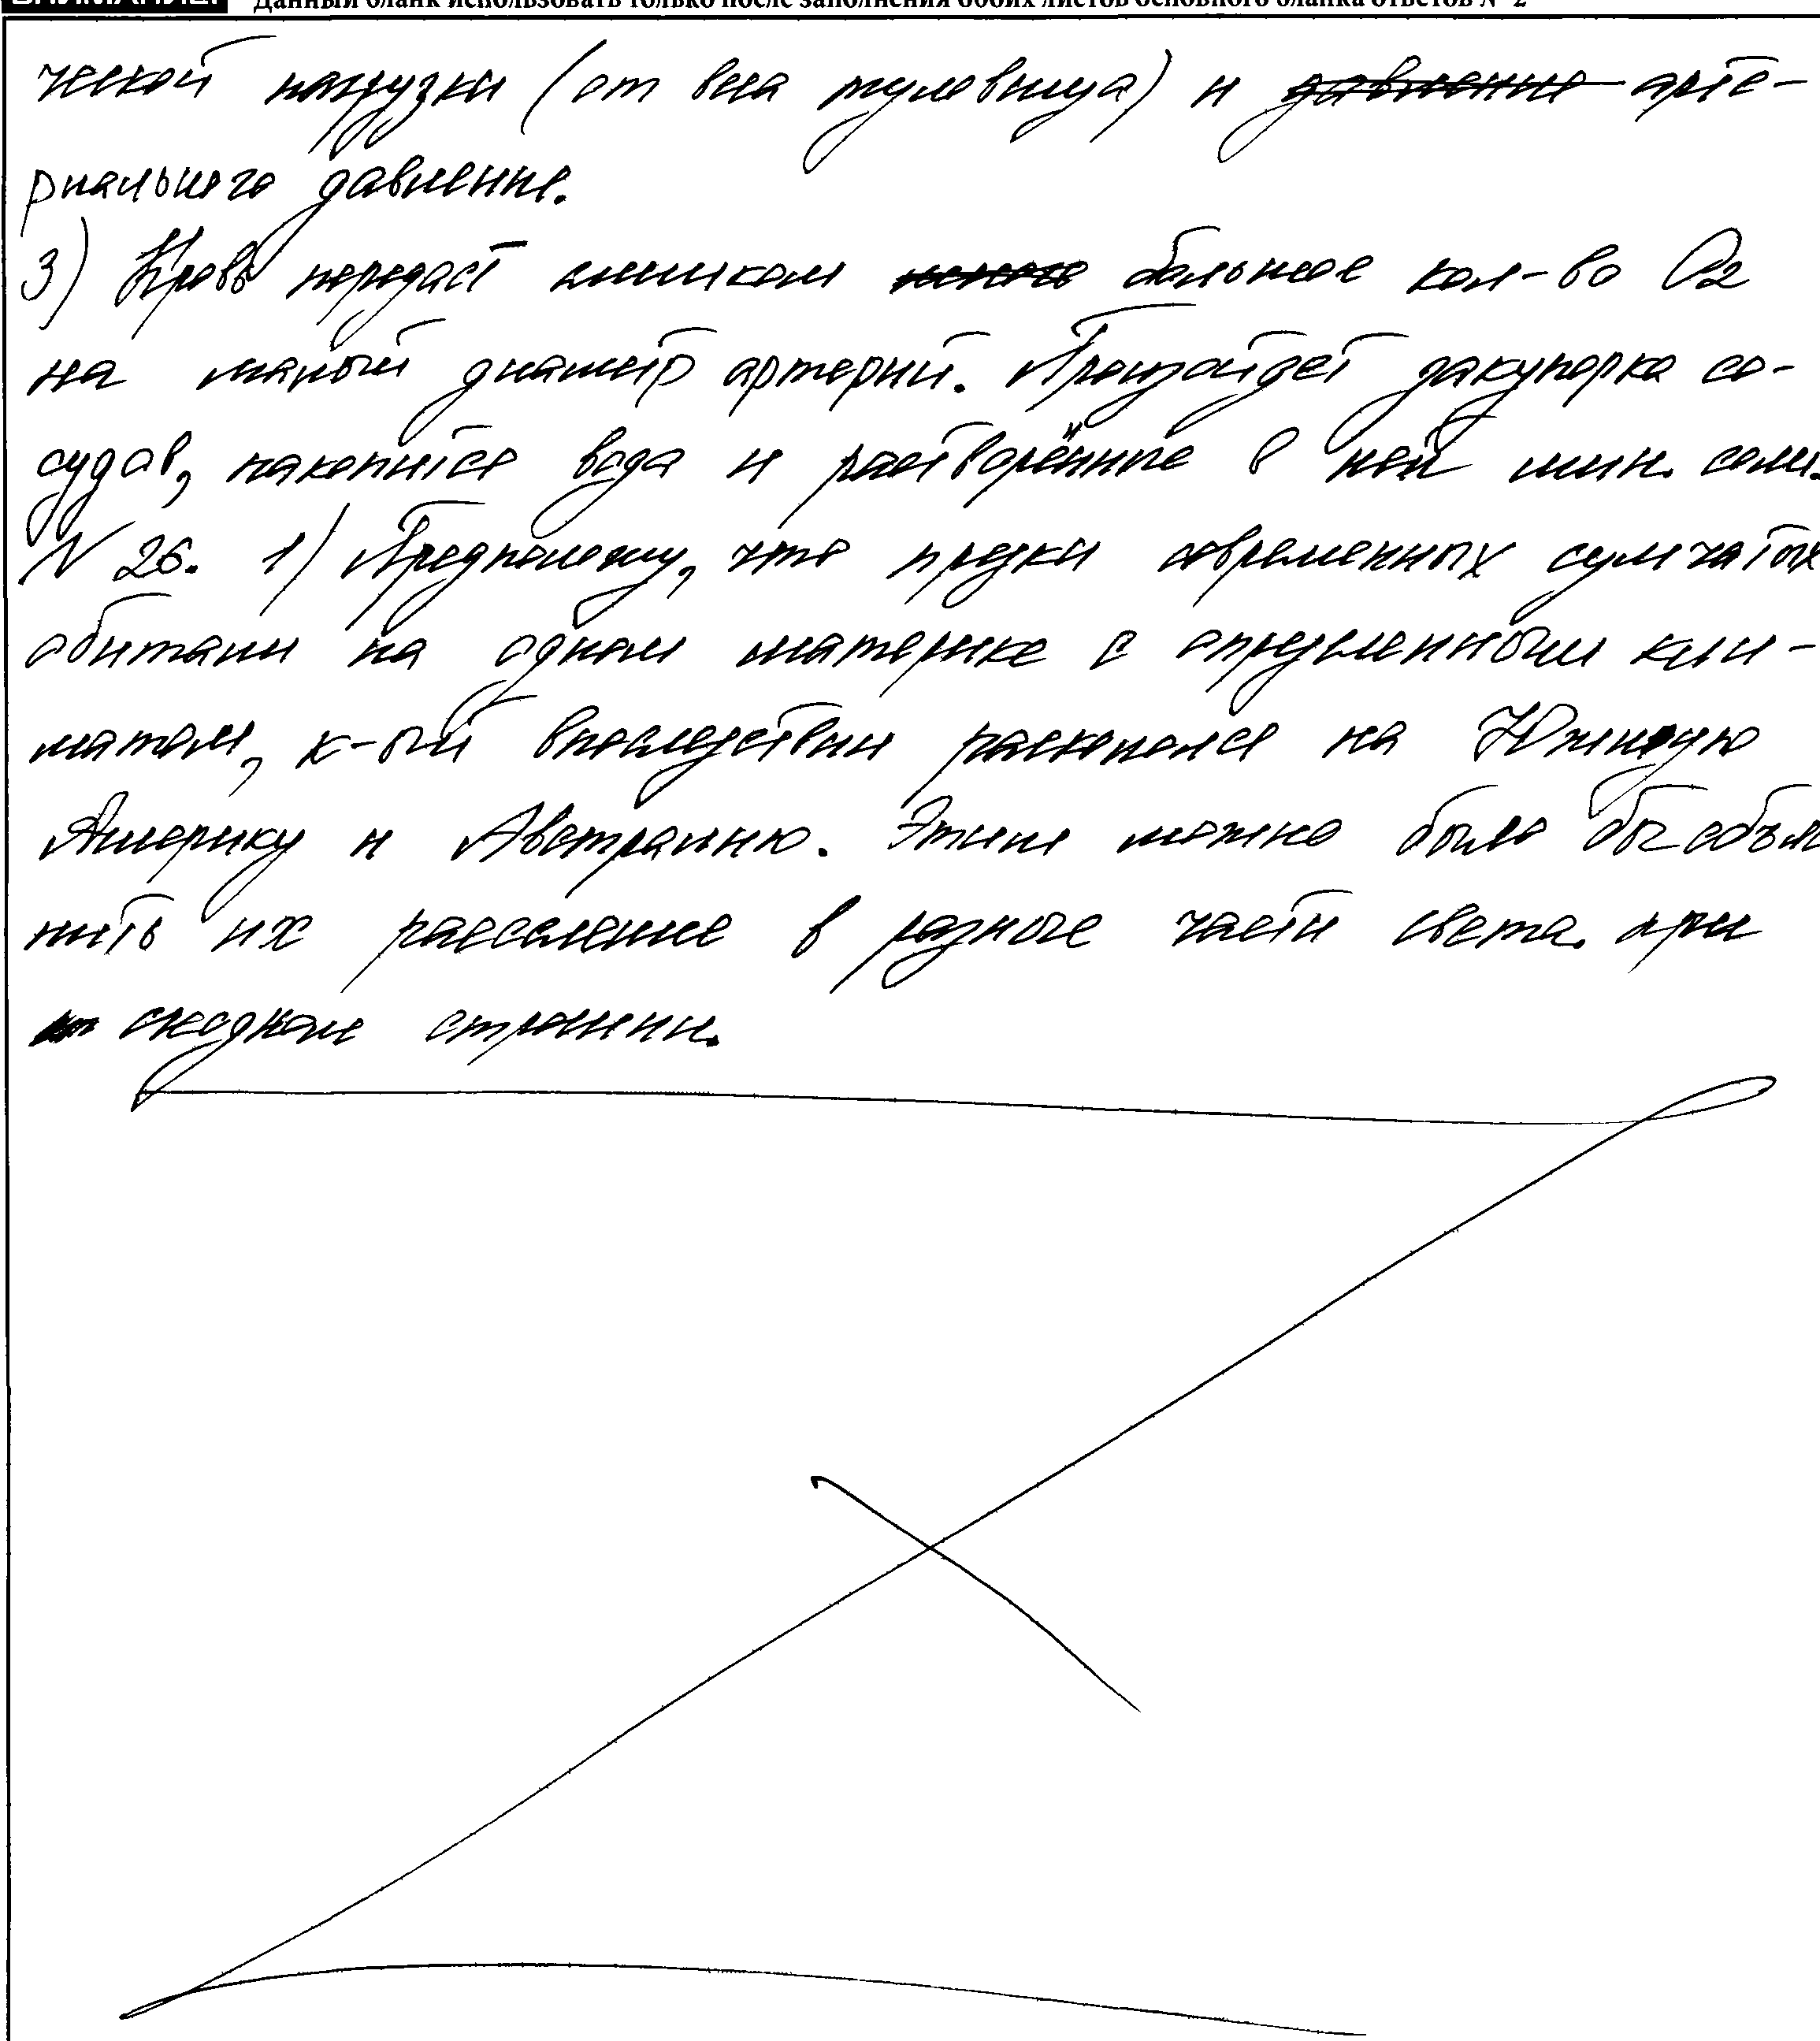 Данный бланк использовать только после заполнения обоих листов основного бланка ответов № 2
ческой нагрузки (от веса туловища) и давление арте-
риального давления.
3) Кровь передаст слишком много большое кол-во O2
на малый диаметр артерий. Произойдет закупорка со-
судов, накопится вода и растворённые в ней мин. соли.
N 26. 1) Предположу, что предки современных сумчатых
обитали на одном материке с определенным кли-
матом, к-ый впоследствии раскололся на Южную
Америку и Австралию. Этим можно было бы объяс
нить их расселение в разные части света. при
сходном строении.